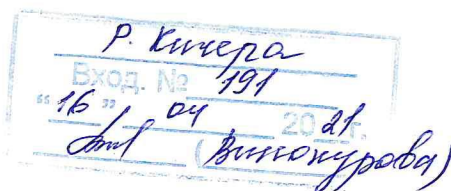 Р. Кичера
Вход. № 191
"16" 04 2021 г.
(Винокурова)